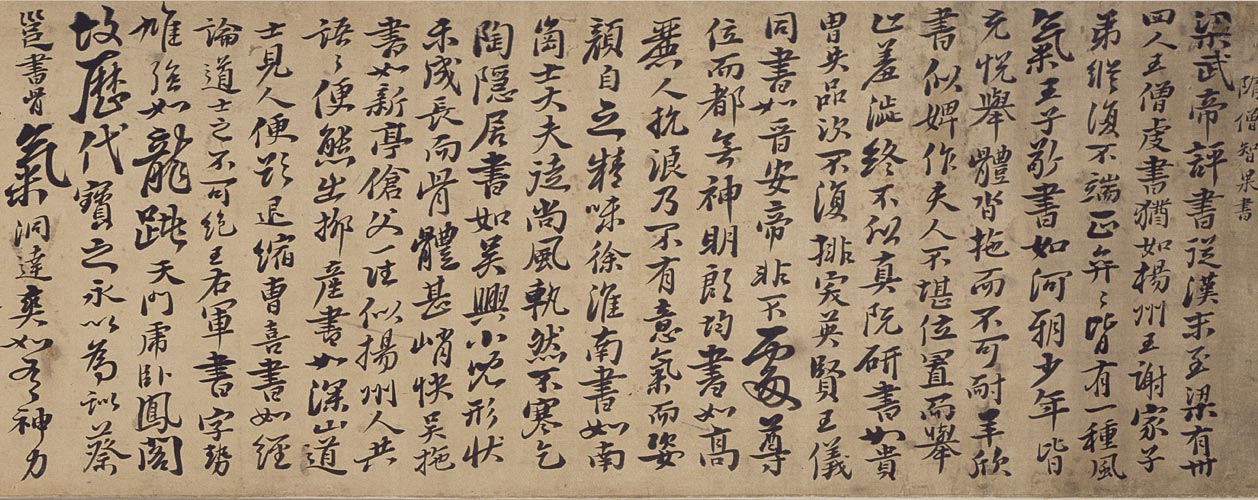 隋僧智果書
梁武帝評書從漢末至梁有卅
四人王僧虔書猶如楊州王謝家子
弟縱復不端正弈々皆有一種風
氣王子敬書如河朔少年皆
充悅舉體沓拖而不可耐羊欣
書似婢作夫人不堪位置而舉
止羞澁終不似真阮研書如貴
胄失品次不復排突英賢王儀
同書如晉安帝非不處尊
位而都無神明郎均書如高
麗人抗浪乃不有意氣而姿
顏自足精味徐淮南書如南
崗士大夫徒尚風軌然不寒乞
陶隱居書如吳興小兒形狀
未成長而骨體甚峭快吳拖
書如新亭傖父一往似揚州人共
語々便態出柳產書如深山道
士見人便欲退縮曹喜書如經
論道士之不可絕王右軍書字勢
雄強如龍跳天門虎卧鳳閣
故歷代寶之永以為訓蔡
邕書骨氣洞達爽如有神力